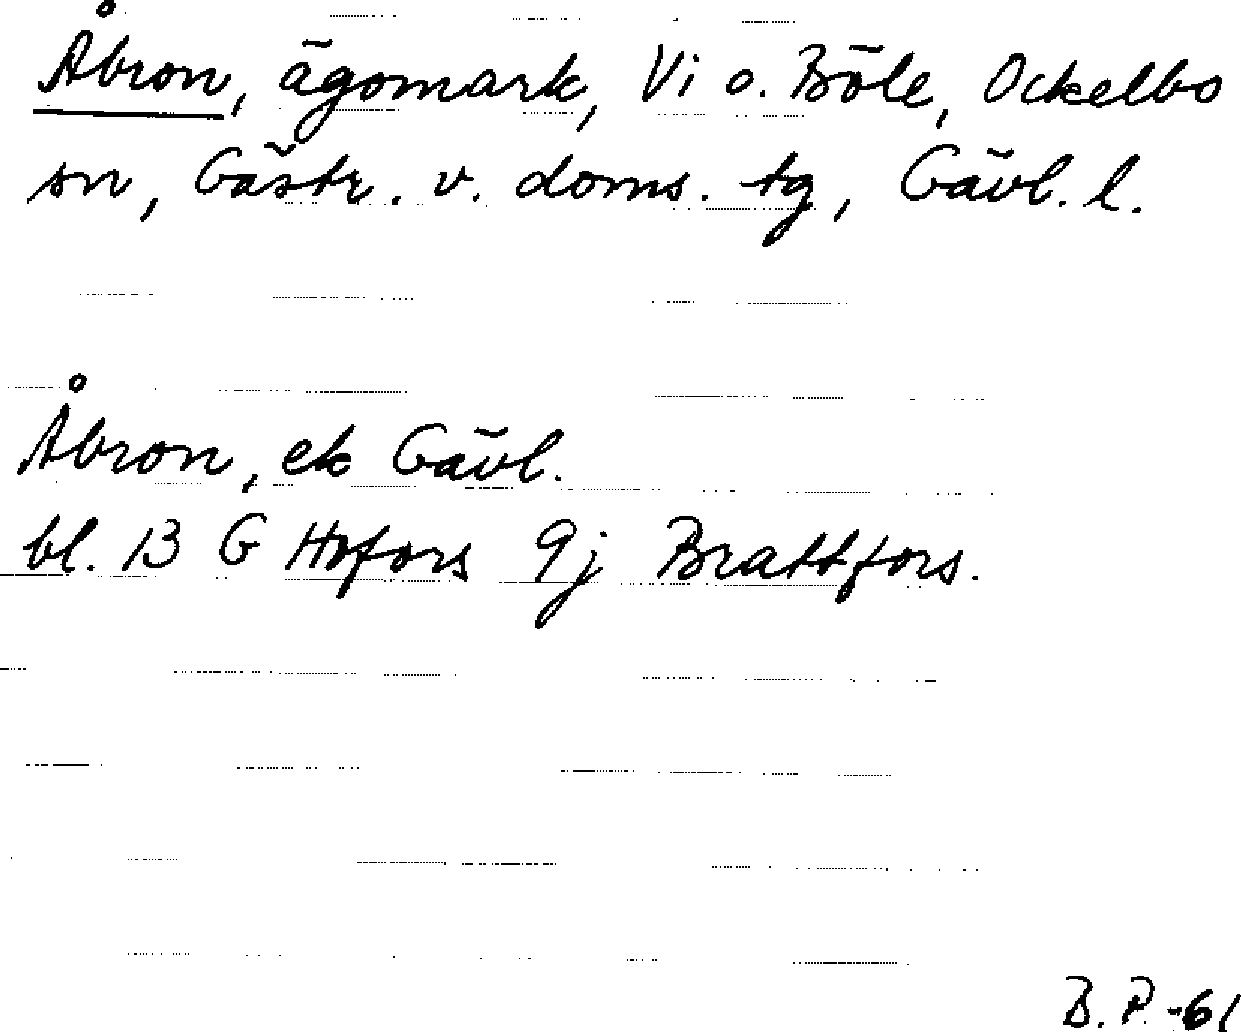 Åbron, ägomark, Vi o. Böle, Ockelbo
sn, Gästr. v. doms. tg, Gävl. l.
Åbron, ek Gävl.
bl. 13 G Hofors 9j Brattfors.
B.P.-61